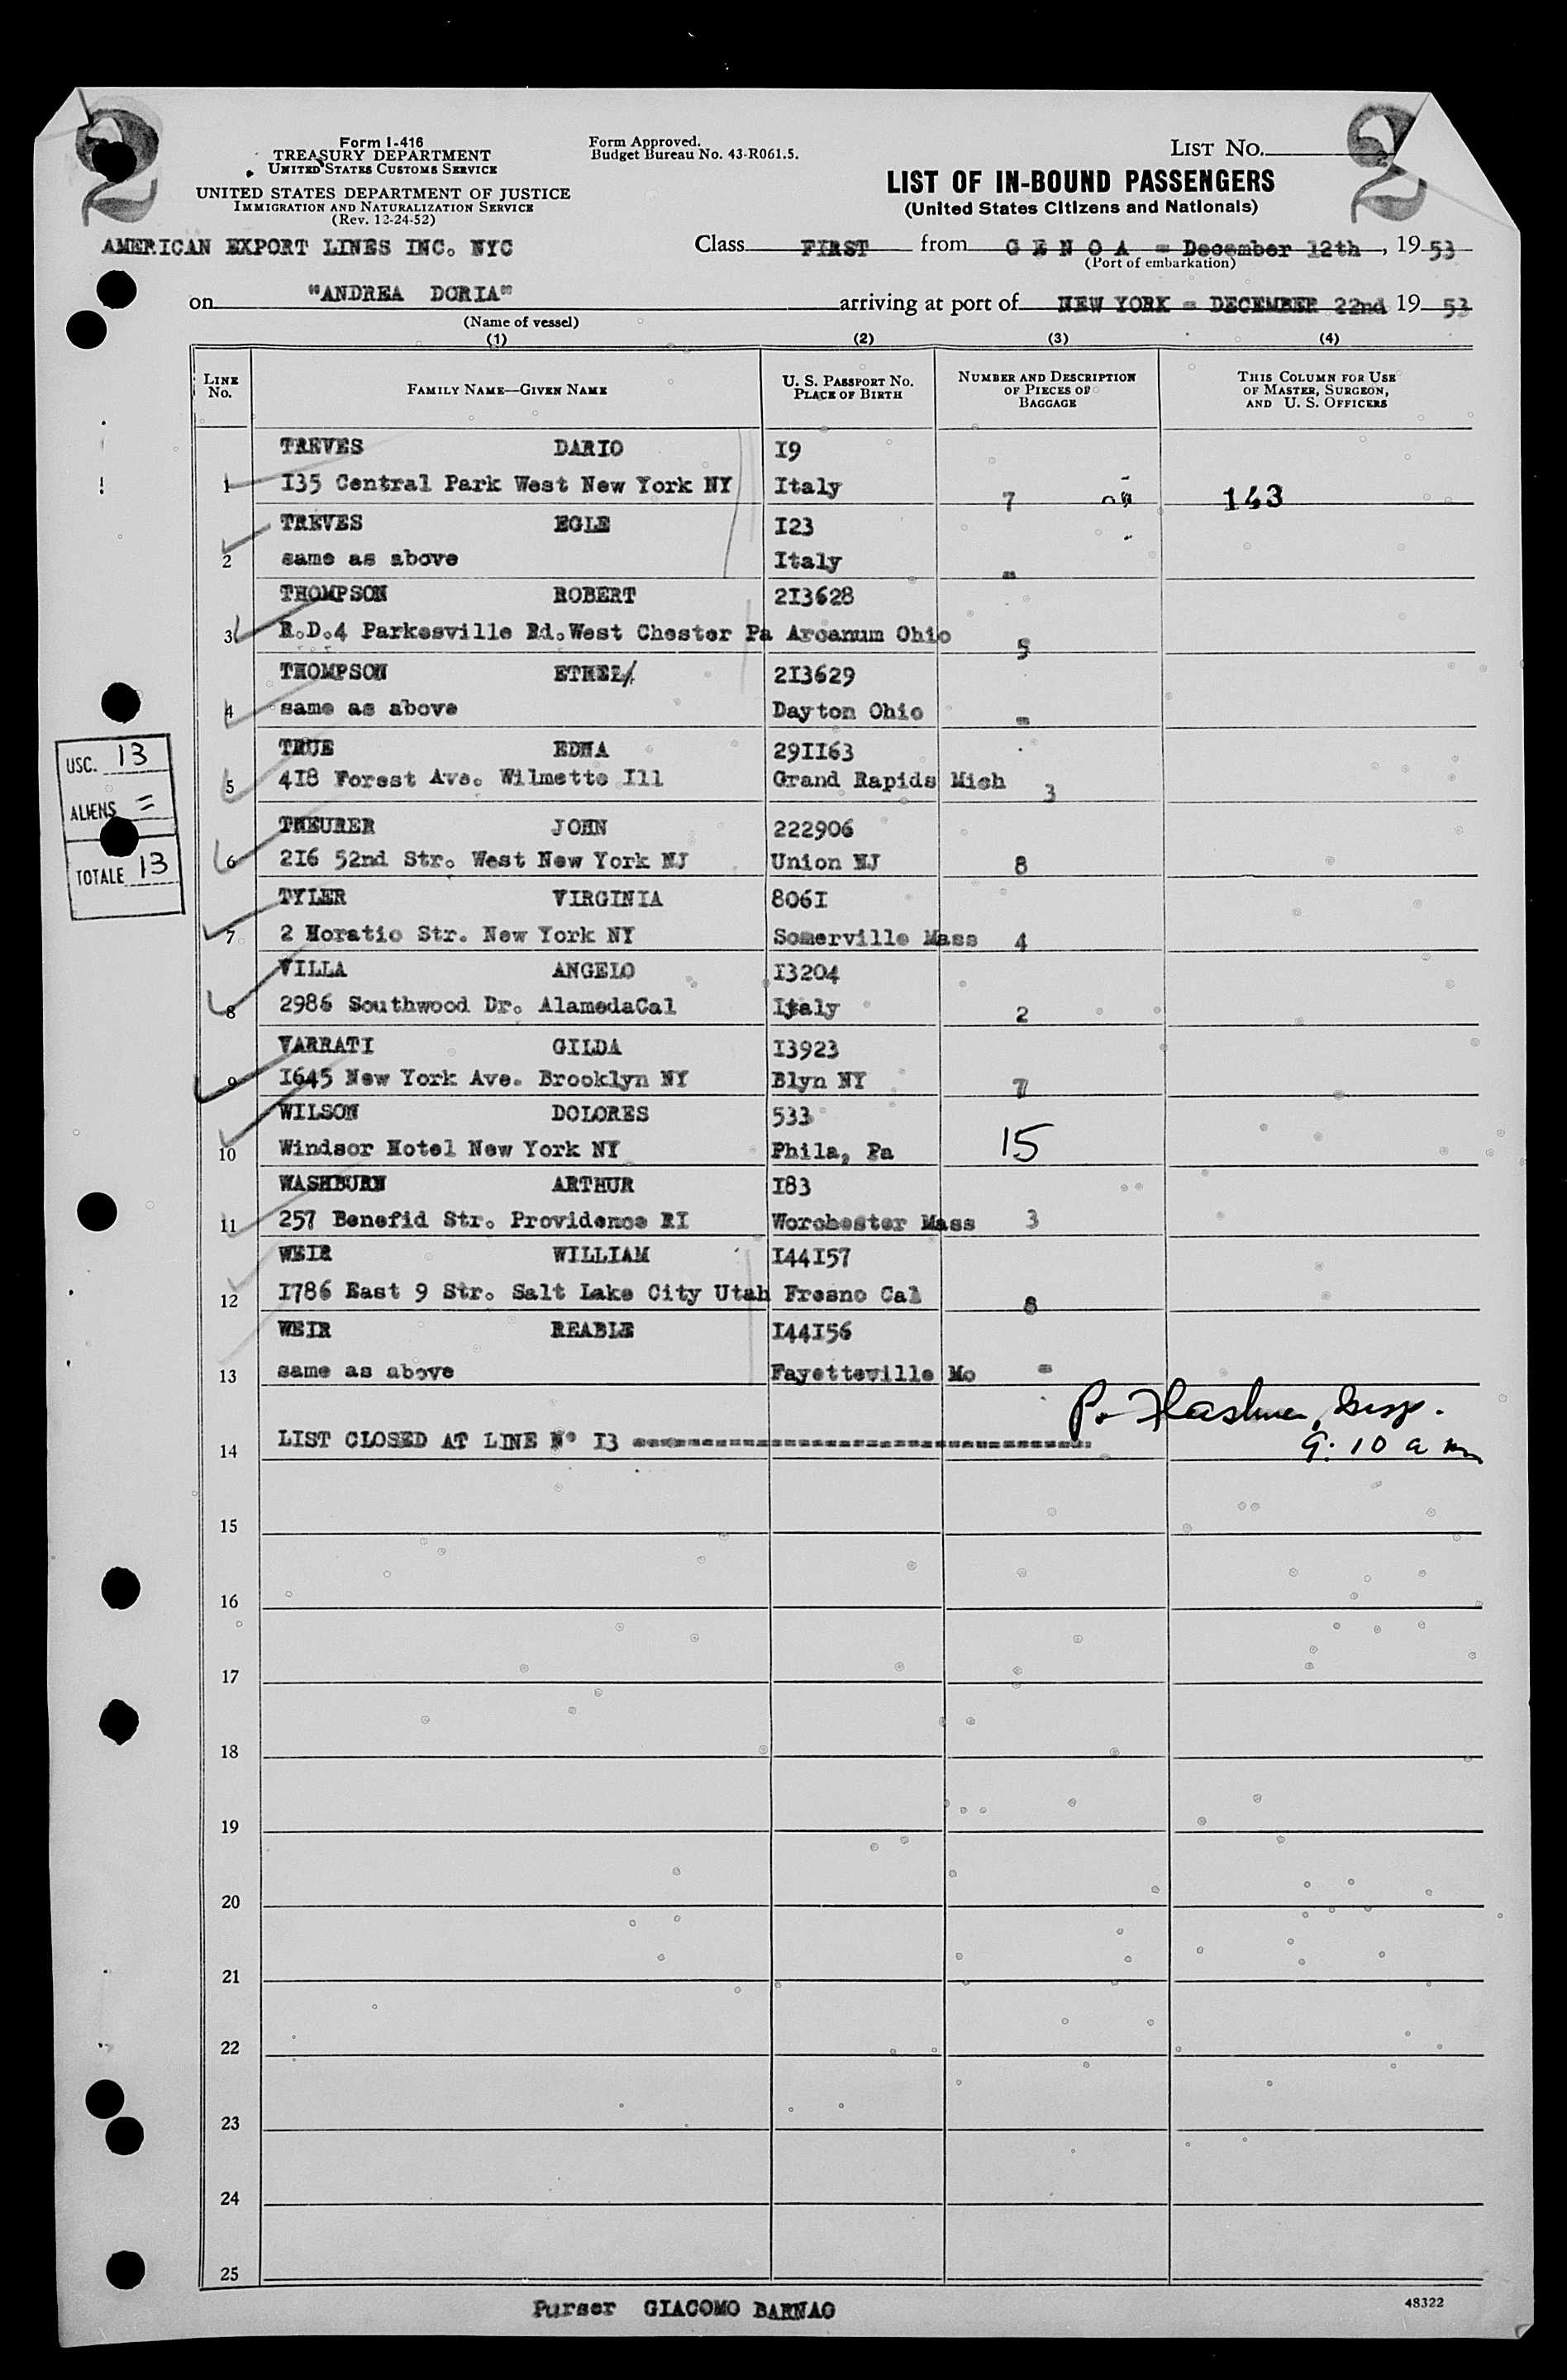 2
2
Form I-416
TREASURY DEPARTMENT
UNITED STATES CUSTOMS SERVICE
UNITED STATES DEPARTMENT OF JUSTICE
IMMIGRATION AND NATURALIZATION SERVICE
(Rev. 12-24-52)
Form Approved.
Budget Bureau No. 43-R061.5.
LIST NO.
LIST OF IN-BOUND PASSENGERS
(United States Citizens and Nationals)
AMERICAN EXPORT LINES INC. NYC
Class FIRST from G E N O A = December 12th, 19 53
(Port of embarkation)
on "ANDREA DORIA" arriving at port of NEW YORK = DECEMBER 22nd 19 53
(Name of vessel)
(1) (2) (3) (4)
LINE NO. FAMILY NAME—GIVEN NAME U. S. PASSPORT NO. PLACE OF BIRTH NUMBER AND DESCRIPTION OF PIECES OF BAGGAGE THIS COLUMN FOR USE OF MASTER, SURGEON, AND U. S. OFFICERS
TREVES DARIO I9
1 I35 Central Park West New York NY Italy 7 143
TREVES EGLE I23
2 same as above Italy =
THOMPSON ROBERT 2I3628
3 R.D.4 Parkesville Rd.West Chester Pa Arcanum Ohio 5
THOMPSON ETHEL 2I3629
4 same as above Dayton Ohio =
TRUE EDNA 29II63
5 4I8 Forest Ave. Wilmette Ill Grand Rapids Mich 3
THEURER JOHN 222906
6 2I6 52nd Str. West New York NJ Union NJ 8
TYLER VIRGINIA 806I
7 2 Horatio Str. New York NY Somerville Mass 4
VILLA ANGELO I3204
8 2986 Southwood Dr. AlamedaCal Italy 2
VARRATI GILDA I3923
9 I645 New York Ave. Brooklyn NY Blyn NY 7
WILSON DOLORES 533
10 Windsor Hotel New York NY Phila, Pa 15
WASHBURN ARTHUR I83
11 257 Benefid Str. Providence RI Worchester Mass 3
WEIR WILLIAM I44I57
12 I786 East 9 Str. Salt Lake City Utah Fresno Cal 8
WEIR REABLE I44I56
13 same as above Fayetteville Mo =
14 LIST CLOSED AT LINE N° I3
9:10 a m
15
16
17
18
19
20
21
22
23
24
25
USC. 13
ALIENS =
TOTALE 13
Purser GIACOMO BARNAO
48322